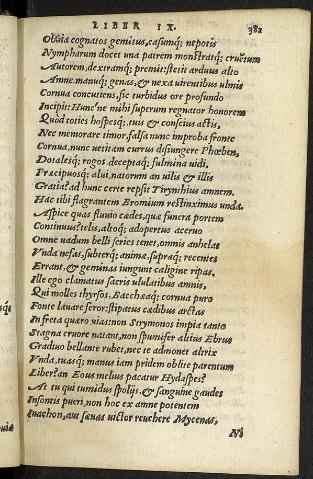 LIBER IX. 382
Obvia cognatos gemitus, casumq; nepotis
Nympharum docet una patrem monstratq; cruentum
Autorem, dextramq; premit: stetit arduus alto
Amne. manuq; genas, & nexa virentibus ulvis
Cornua concutiens, sic turbidus ore profundo
Incipit: Hunc'ne mihi superum regnator honorem
Quòd toties hospesq; tuis & conscius actis,
Nec memorare timor, falsa nunc improba fronte
Cornua, nunc vetitam currus disiungere Phœben,
Dotalesq; rogos deceptaq; fulmina vidi,
Præcipuosq; alui, natorum an vilis & illis
Gratia? ad hunc certe repsit Tirynthius amnem.
Hac tibi flagrantem Bromium restinximus unda.
Aspice quas fluvio cædes, quæ funera portem
Continuus? telis, altoq; adopertus acervo
Omne vadum belli series tenet, omnis anhelat
Vnda nefas, subterq; animæ, supraq; recentes
Errant, & geminas iungunt caligine ripas,
Ille ego clamatus sacris ululatibus amnis,
Qui molles thyrsos, Bacchæaq; cornua puro
Fonte lavare feror: stipatus cædibus arctas
In freta quæro vias: non Strymonos impia tanto
Stagna cruore natant, non spumifer altius Ebrus
Gradivo bellante rubet, nec te admonet altrix
Vnda, tuasq; manus iam pridem oblite parentum
Liber? an Eous melius pacatur Hydaspes?
At tu qui tumidus spolijs, & sanguine gaudes
Insontis pueri, non hoc ex amne potentem
Inachon, aut sævas victor revehere Mycenas,